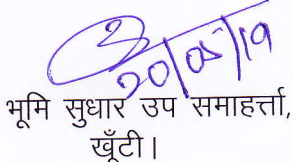 20/05/19
भूमि सुधार उप समाहर्त्ता,
खूँटी।